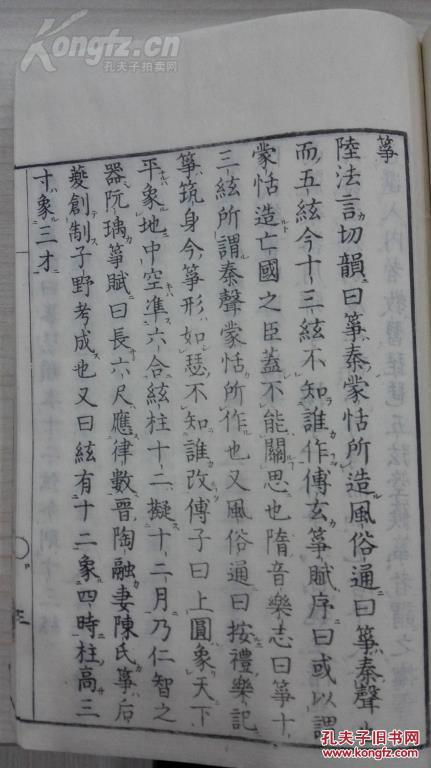 箏
陸法言切韻曰箏秦蒙恬所造風俗通曰箏秦聲也
而五絃今十三絃不知誰作傅玄箏賦序曰或以謂
蒙恬造亡國之臣蓋不能關思也隋音樂志曰箏十
三絃所謂秦聲蒙恬所作也又風俗通曰按禮樂記
箏筑身今箏形如瑟不知誰改傅子曰上圓象天下
平象地中空准六合絃柱十二擬十二月乃仁智之
器阮瑀箏賦曰長六尺應律數晉陶融妻陳氏箏后
夔創制子野考成也又曰絃有十二象四時柱高三
寸象三才
三
Kongfz.cn
孔夫子拍卖网
孔夫子旧书网
www.kongfz.com